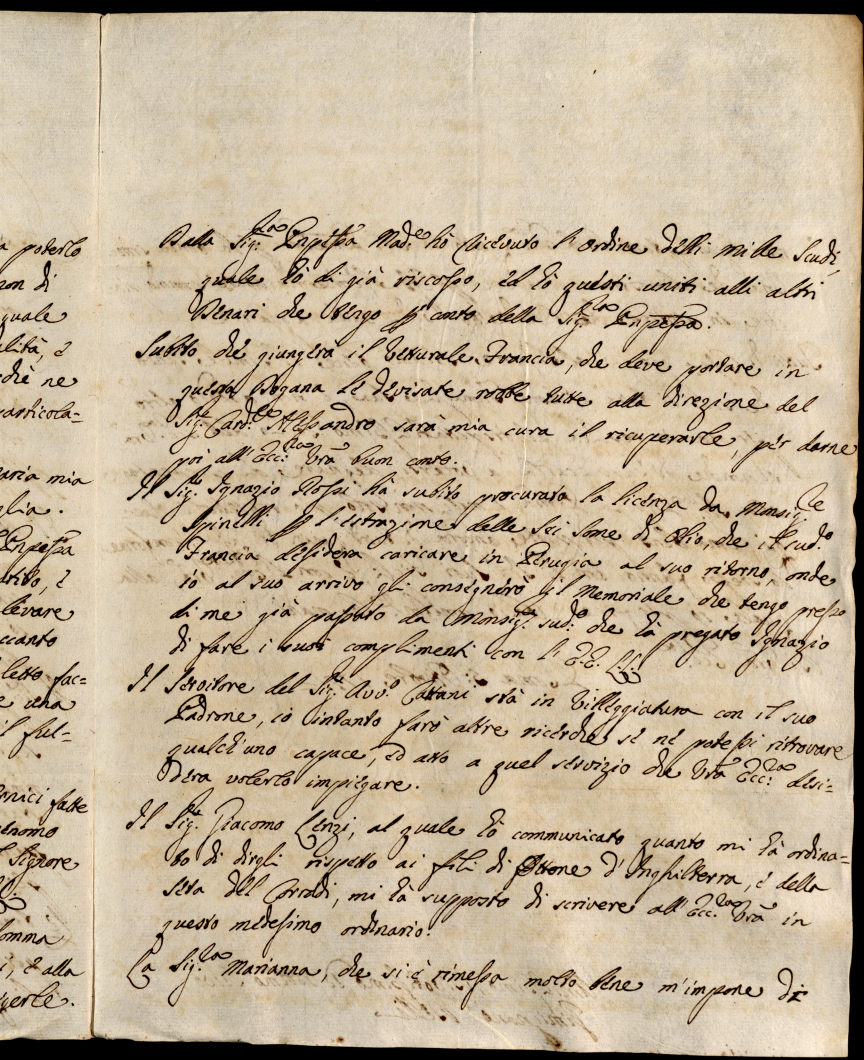 a poterlo
non di
quale
alità, è
chè ne
particola=
aria mia
glia.
Pnpessa
levare
ccanto
letto fac=
e una
il ful=
rnici fatte
Signore
omma
i, è alla
verle.
Dalla Sig.ra Pnpessa Mad.e hò ricevuto l'ordine delli mille scudi,
quale hò di già riscosso, ed hò questi uniti alli altri
Denari che tengo p conto della Sig.ra Pnpessa.
Subito che giungerà il Vetturale Francia, che deve portare in
questa Dogana le divisate robbe tutte alla direzione del
Sig.r Card.le Alessandro sarà mia cura il ricuperarle, per darne
poi all'Ecc.za Vrā buon conto.
Il Sig.r Ignazio Rossi hà subito procurata la licenza da Monsig.re
Spinelli p l'estrazione delle sei some di Olio, che il sud.o
Francia desidera caricare in Perugia al suo ritorno, onde
io al suo arrivo gli consegnerò il Memoriale che tengo presso
di me già passato da Monsig.r sud.o che hà pregato Ignazio
di fare i suoi complimenti con l'E.E. L.L.
Il Servitore del Sig.r Avv.o Cattani stà in Villeggiatura con il suo
Padrone, io intanto farò altre ricerche se ne potessi ritrovare
qualch'uno capace, ed atto a quel servizio che Vrā Ecc.za desi=
dera volerlo impiegare.
Il Sig.r Giacomo Lenzi, al quale hò communicato quanto mi hà ordina=
to di dirgli rispetto ai fili di Ottone d'Inghilterra, è della
seta del Corradi, mi hà supposto di scrivere all'Ecc.za Vrā in
questo medesimo ordinario.
La Sig.ra Marianna, che si è rimessa molto bene m'impone di